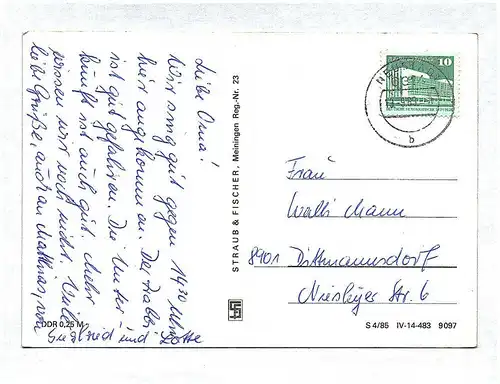 Liebe Oma!
Wir sind gut gegen 14³⁰ Uhr
hier angekommen. Der Trabbi
ist gut gefahren. Die Unter-
kunft ist auch gut. Mehr
wissen wir noch nicht. Viele
liebe Grüße, auch an Matthias, von
Siegfried und Lotte
DDR 0,25 M
STRAUB & FISCHER, Meiningen Reg.-Nr. 23
10
b
Frau
Walli Mann
8901 Dittmannsdorf
Str. 6
S 4/85 IV-14-483 9097